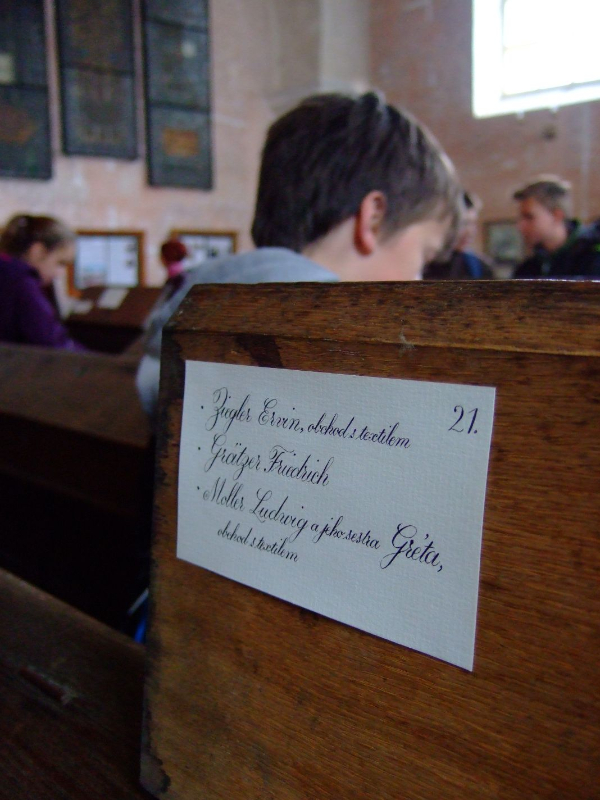 21.
· Ziegler Ervin, obchod s textilem
· Grätzer Friedrich
· Moller Ludwig a jeho sestra Gréta,
obchod s textilem